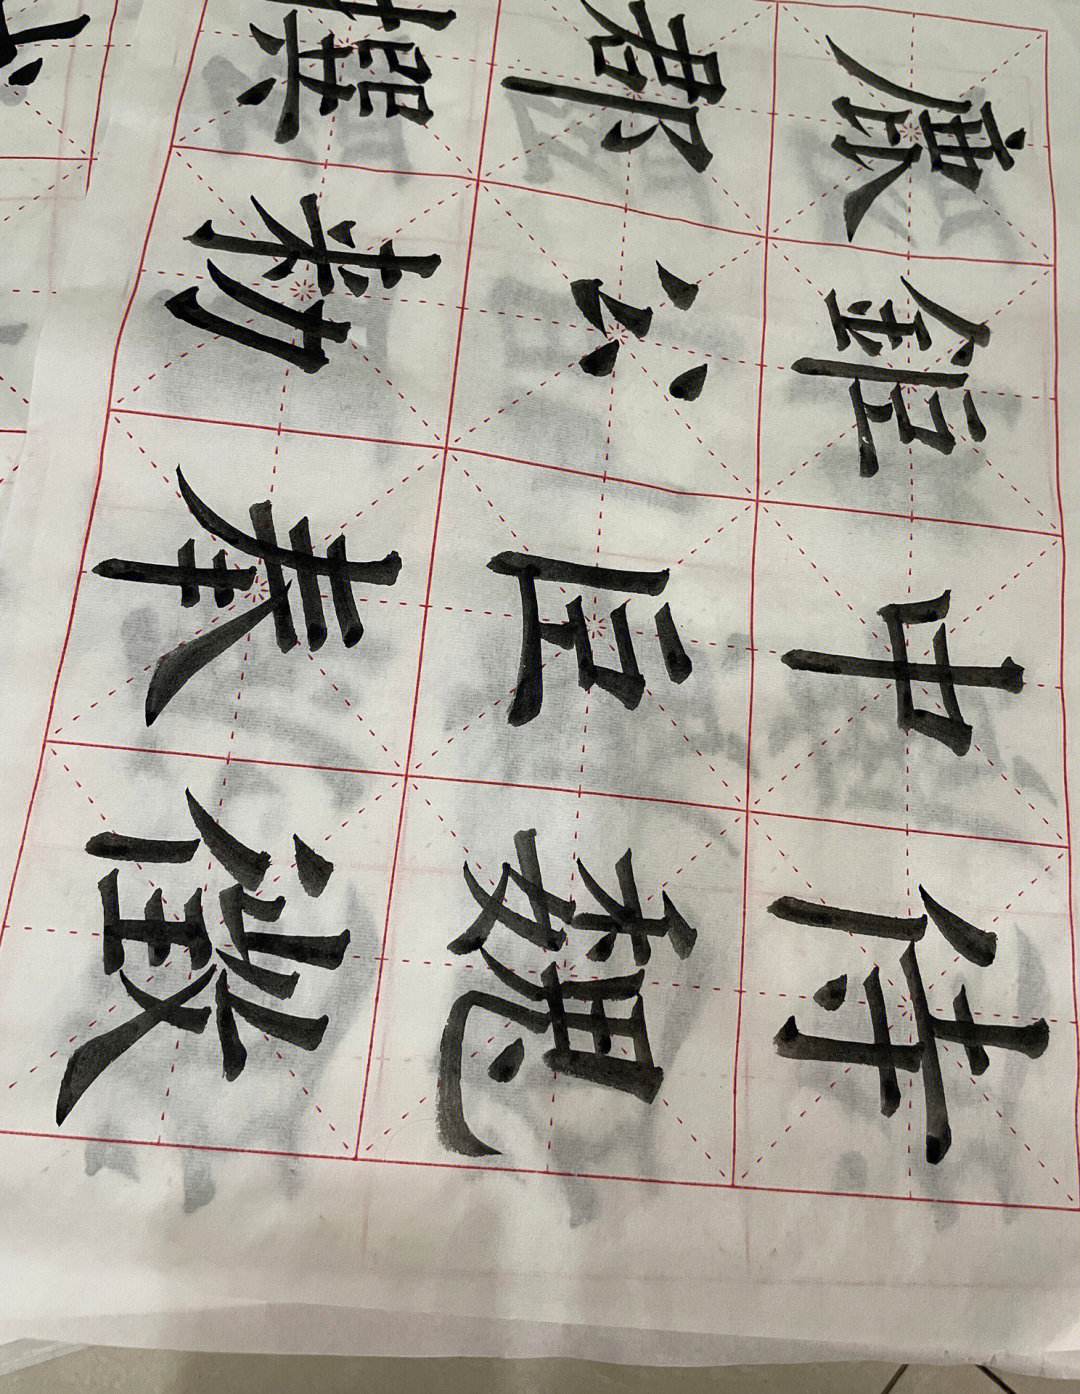 侍中鉅鹿
郡公臣魏
徵奉勅撰